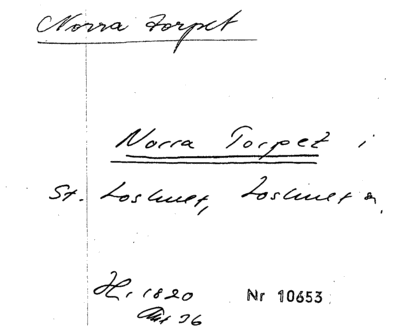 Norra Torpet
Norra Torpet i
St. Toshult, Toshult s.
H. 1820
Nr 10653
36